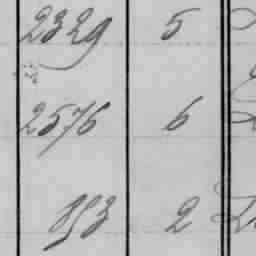 2329 5
2576 6
853 2